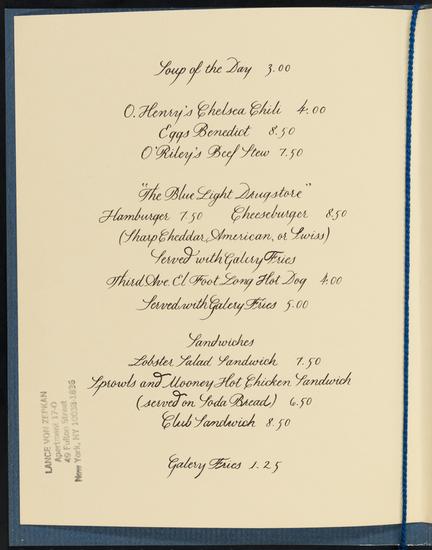 Soup of the Day 3.00
O. Henry's Chelsea Chili 4.00
Eggs Benedict 8.50
O'Riley's Beef Stew 7.50
"The Blue Light Drugstore"
Hamburger 7.50 Cheeseburger 8.50
(Sharp Cheddar, American, or Swiss)
Served with Galery Fries
Third Ave. El Foot Long Hot Dog 4.00
Served with Galery Fries 5.00
Sandwiches
Lobster Salad Sandwich 7.50
Sprowls and Mooney Hot Chicken Sandwich
(served on Soda Bread) 6.50
Club Sandwich 8.50
Galery Fries 1.25
LANCE VON
Apartment 17-O
49 Fulton Street
New York, NY 10038-1836